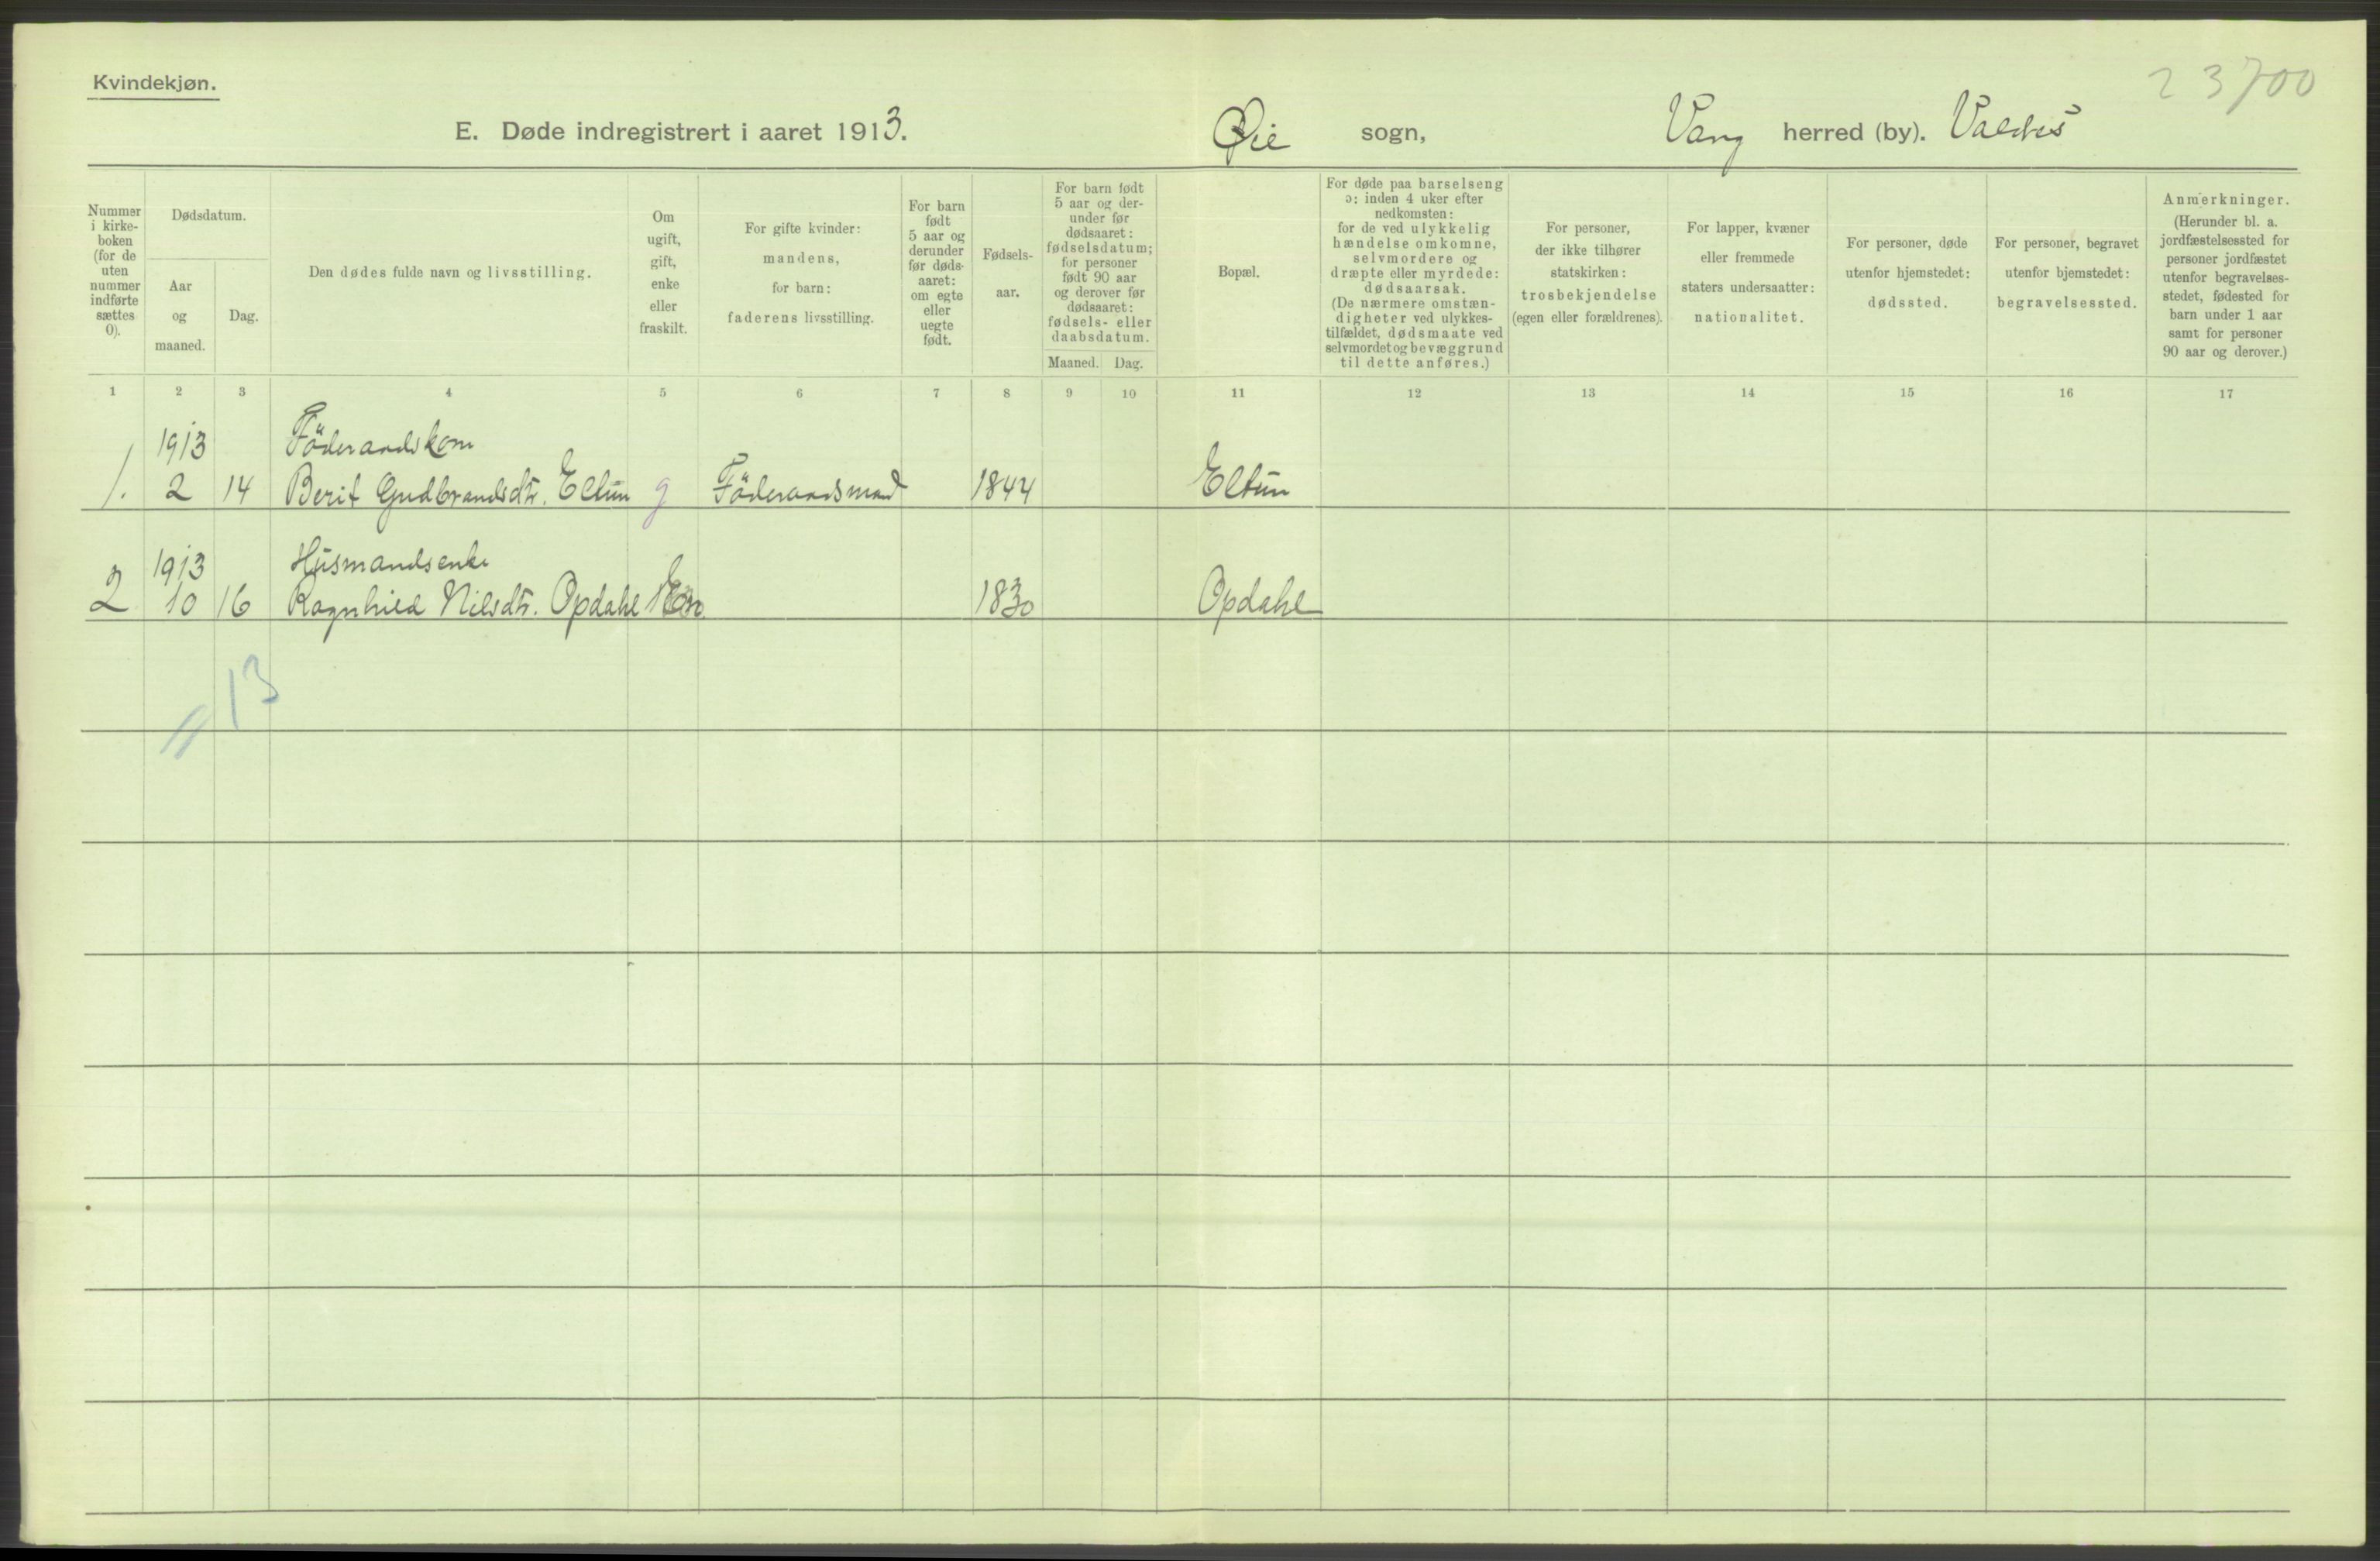 Kvindekjøn.
23700
E. Døde indregistrert i aaret 1913.
Øie sogn,
Vang herred (by). Valdres
Nummer i kirke-boken (for de uten nummer indførte sættes 0).
Dødsdatum.
Aar og maaned.
Dag.
Den dødes fulde navn og livsstilling.
Om ugift, gift, enke eller fraskilt.
For gifte kvinder: mandens, for barn: faderens livsstilling.
For barn født 5 aar og derunder før døds-aaret: om egte eller uegte født.
Fødsels-aar.
For barn født 5 aar og der-under før dødsaaret: fødselsdatum; for personer født 90 aar og derover før dødsaaret: fødsels- eller daabsdatum.
Maaned. Dag.
Bopæl.
For døde paa barselseng ɔ: inden 4 uker efter nedkomsten: for de ved ulykkelig hændelse omkomne, selvmordere og dræpte eller myrdede: dødsaarsak. (De nærmere omstæn-digheter ved ulykkes-tilfældet, dødsmaate ved selvmordet og bevæggrund til dette anføres.)
For personer, der ikke tilhører statskirken: trosbekjendelse (egen eller forældrenes).
For lapper, kvæner eller fremmede staters undersaatter: nationalitet.
For personer, døde utenfor hjemstedet: dødssted.
For personer, begravet utenfor hjemstedet: begravelsessted.
Anmerkninger. (Herunder bl. a. jordfæstelsessted for personer jordfæstet utenfor begravelses-stedet, fødested for barn under 1 aar samt for personer 90 aar og derover.)
1 2 3 4 5 6 7 8 9 10 11 12 13 14 15 16 17
1913 Föderaadskone
1. 2 14 Berit Gudbrandsdtr. Eltun g Föderaadsmand 1844 Eltun
1913 Husmandsenke
2 10 16 Ragnhild Nilsdtr. Opdahl 1830 Opdahl
13